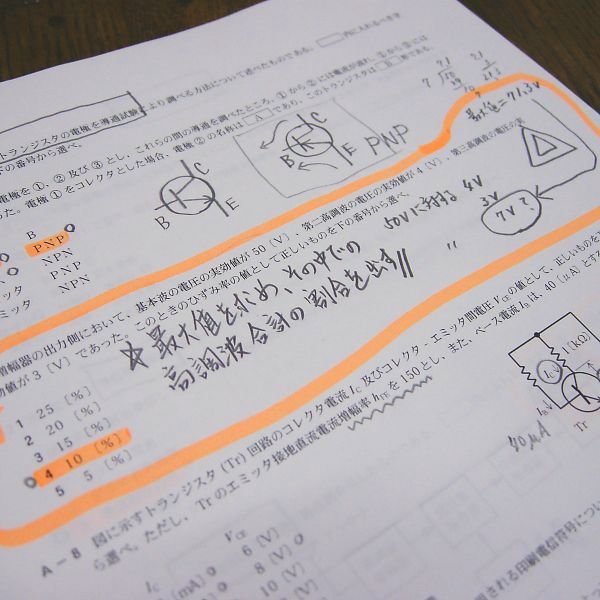 より調べる方法について述べたものである。 内に入れるべき字
トランジスタの電極を導通試験
電極を①、②及び③とし、これらの間の導通を調べたところ、①から②には電流が流れ、
った。電極①をコレクタとした場合、電極②の名称は A であり、このトランジスタは B 形である。
下の番号から選べ。
7 71
21
最大値=71.3V
B
PNP
NPN
PNP
NPN
ミッタ
ミッタ
B C E
B C E PNP
増幅器の出力側において、基本波の電圧の実効値が50〔V〕、第二高調波の電圧の実効値が4〔V〕、第三高調波の電圧の実
効値が3〔V〕であった。このときのひずみ率の値として正しいものを下の番号から選べ。
50Vに対する 4V
3V
7V?
〃
☆最大値を求め、その中での
高調波合計の割合を出す!!
1 25〔%〕
2 20〔%〕
3 15〔%〕
4 10〔%〕
5 5〔%〕
A-8 図に示すトランジスタ(Tr)回路のコレクタ電流IC及びコレクタ-エミッタ間電圧VCEの値として、正しいものを下
ら選べ。ただし、Trのエミッタ接地直流電流増幅率hFEを150とし、また、ベース電流IBは、40〔μA〕と
1〔kΩ〕
Tr
40μA
IC VCE
〔mA〕 6〔V〕
8〔V〕
10〔V〕
される印刷電信符号につい